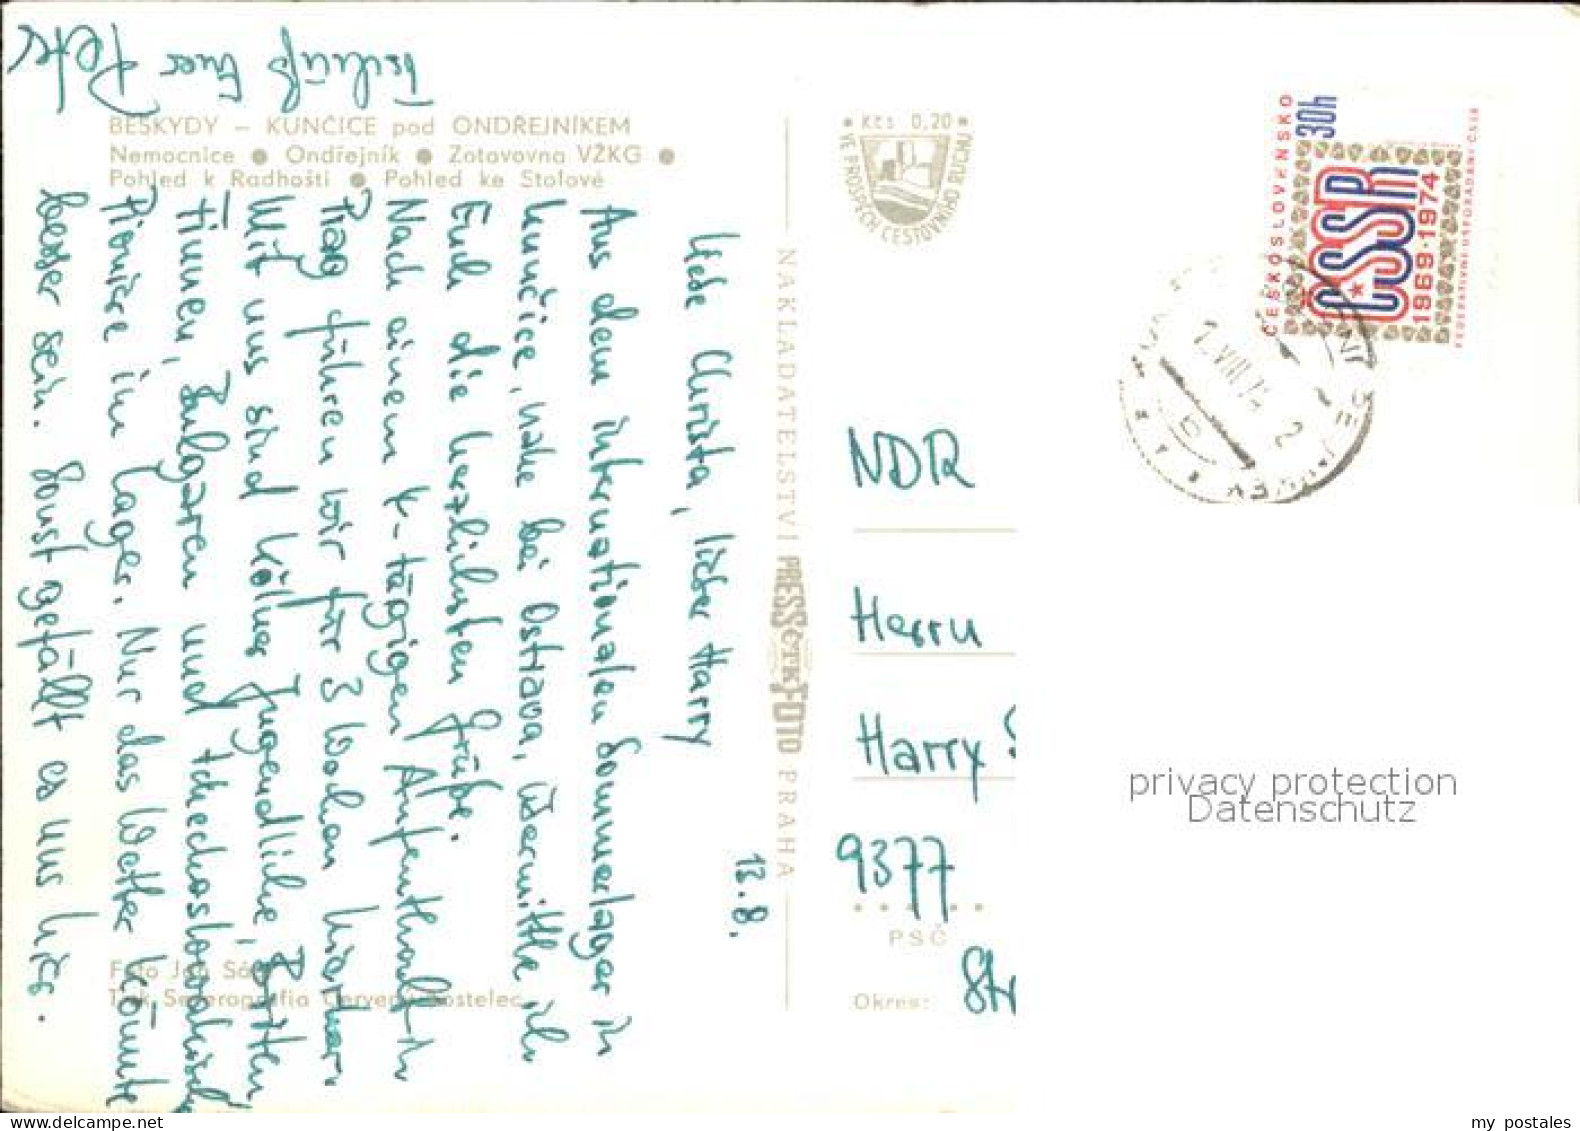 BESKYDY – KUNČICE pod ONDŘEJNÍKEM
Nemocnice ● Ondřejník ● Zotavovna VŽKG ●
Pohled k Radhošti ● Pohled ke Stolové
13.8.
Liebe Christa, lieber Harry
Aus dem internationalen Sommerlager in
Kunčice, nahe bei Ostrava, übermittle ich
Euch die herzlichsten Grüße.
Nach einem 4-tägigen Aufenthalt in
Prag führen wir für 3 Wochen hierher.
Mit uns sind Kölner Jugendliche, Briten,
Finnen, Bulgaren und tschechoslowakische
Pioniere im Lager. Nur das Wetter könnte
besser sein. Sonst gefällt es uns hier.
Tschüß Euer Peter
Foto Jan
Tisk Severografia Červený Kostelec
NAKLADATELSTVÍ PRESSFOTO PRAHA
ČTK
* Kčs 0,20 *
VE PROSPĚCH CESTOVNÍHO RUCHU
ČESKOSLOVENSKO
30h
ČSSR
1969·1974
FEDERATIVNÍ USPOŘÁDÁNÍ ČSSR
NDR
Herrn
Harry
9377
PSČ
Okres:
privacy protection
Datenschutz
my postales